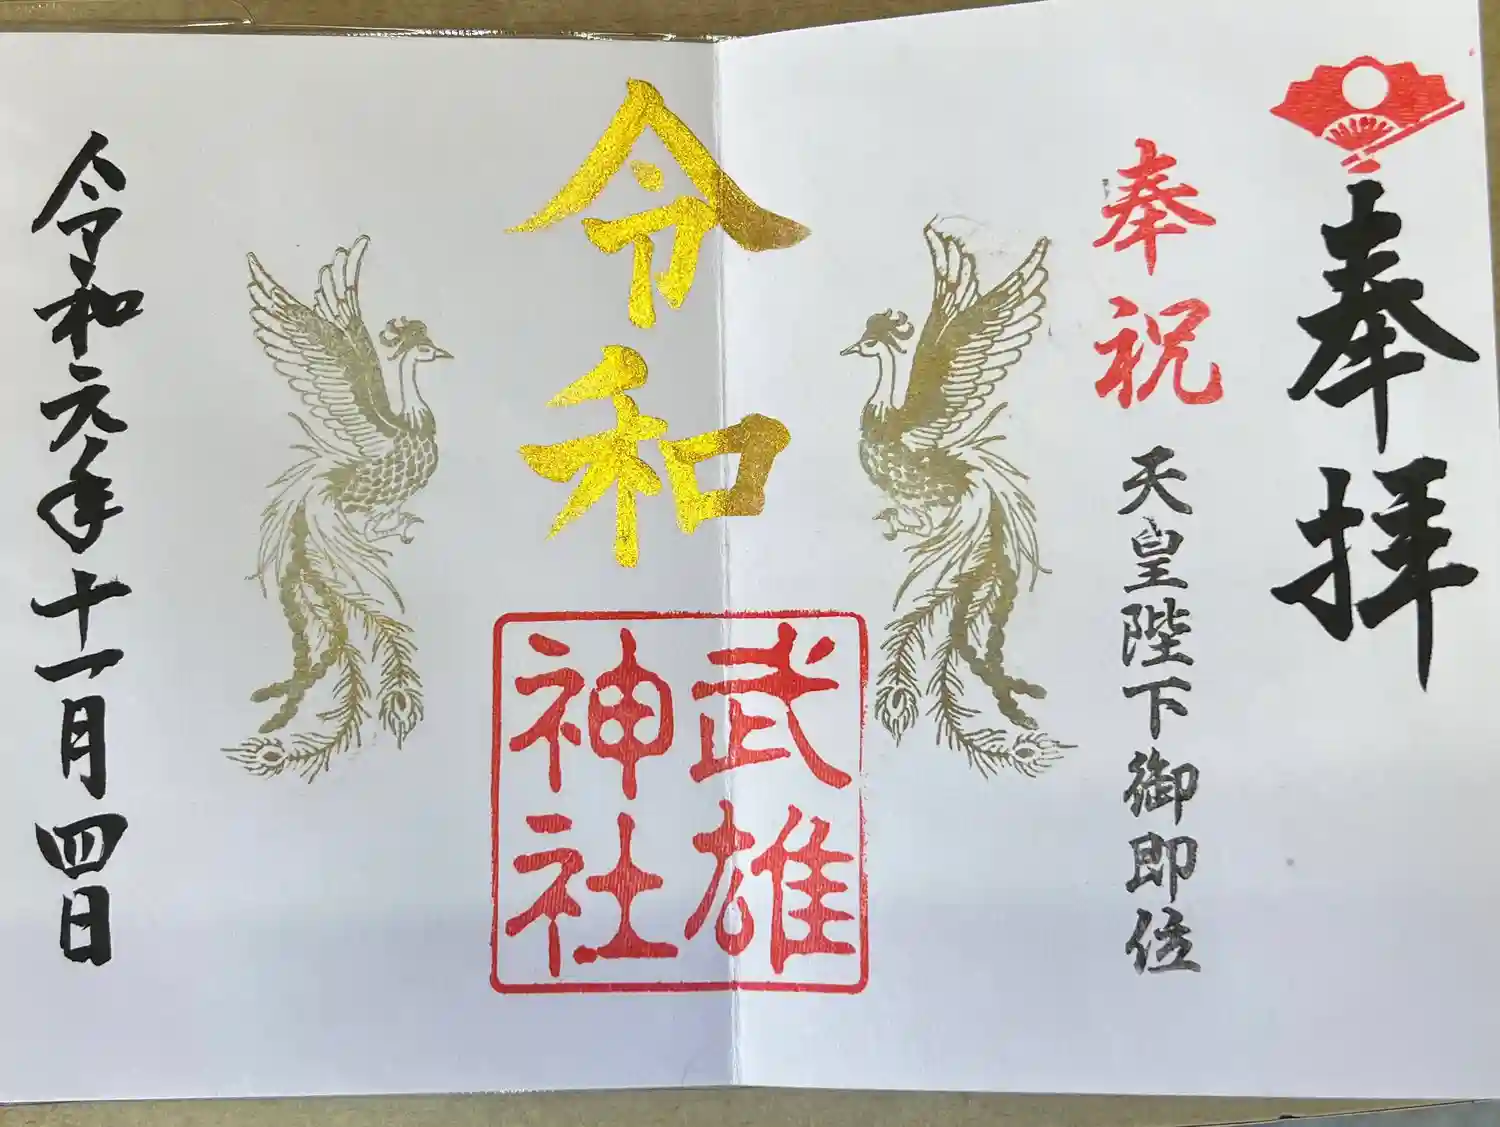 奉拝
奉祝
天皇陛下御即位
令和
武雄
神社
令和元年十一月四日